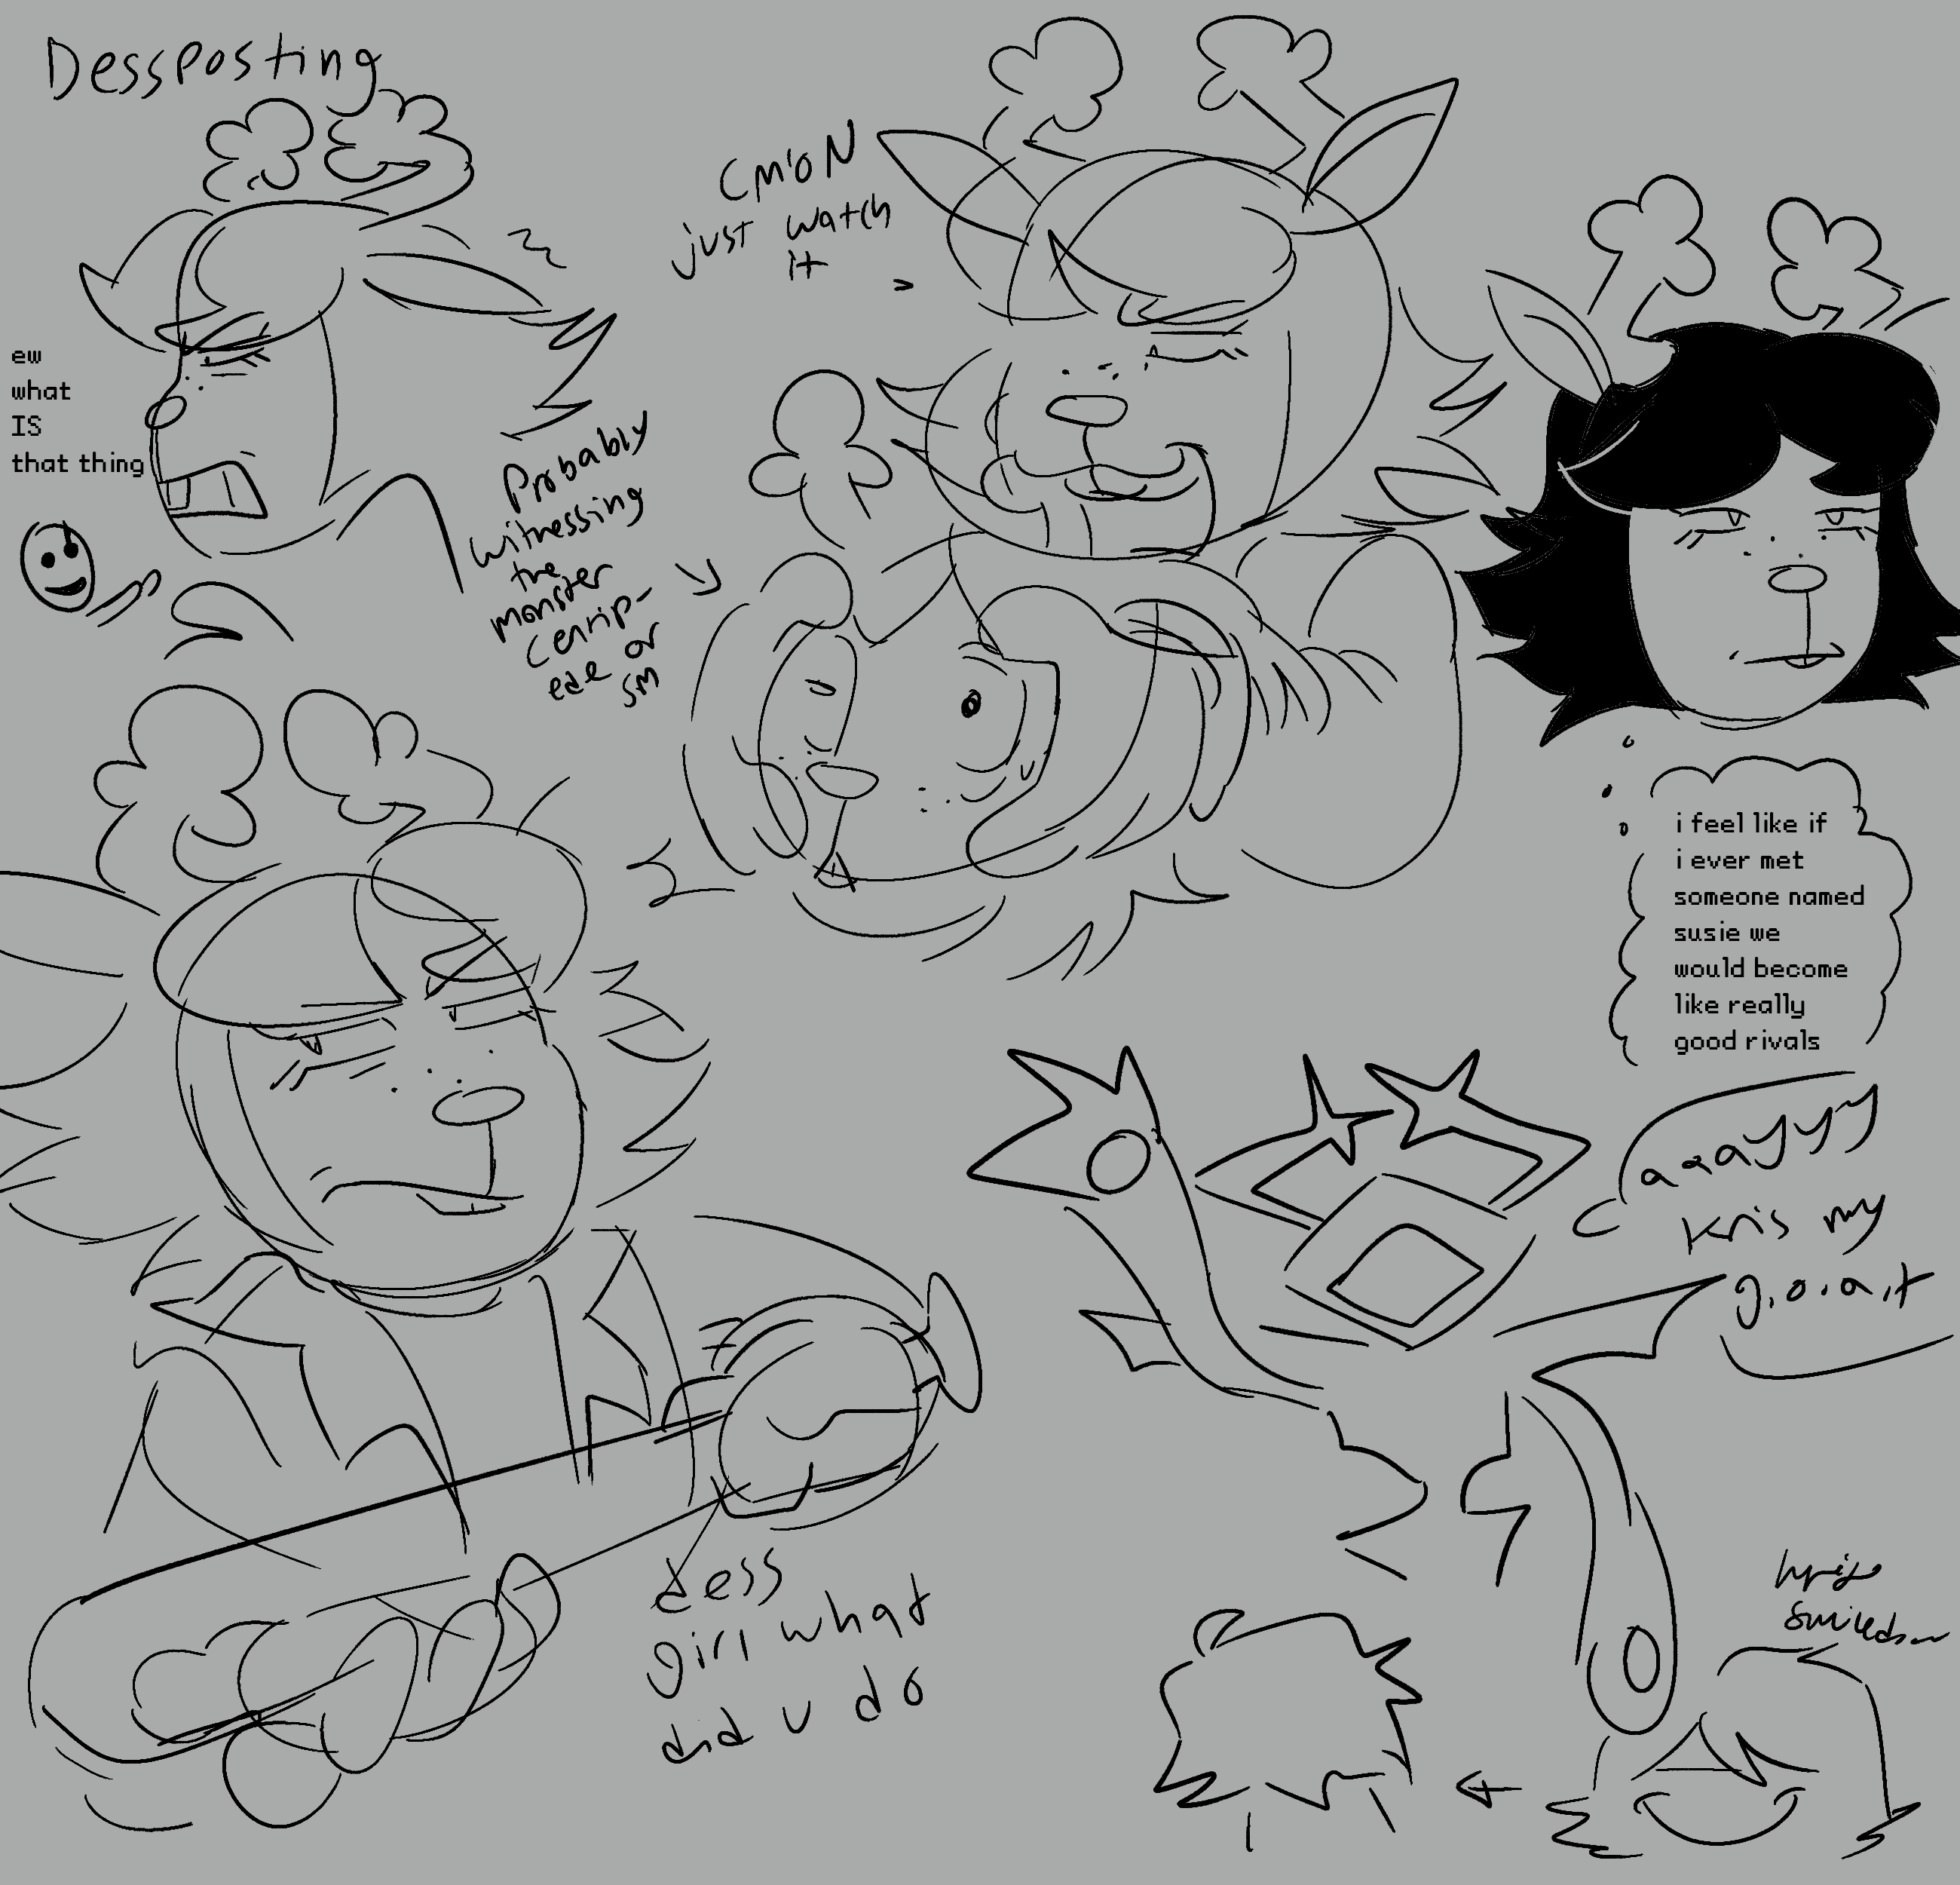 Dessposting
ew
what
IS
that thing
Cm'oN
just watch
it
Probably
witnessing
the
monster
Centip-
ede or
sm
i feel like if
i ever met
someone named
susie we
would become
like really
good rivals
aaayyy
Kris my
g.o.a.t
dess
girl what
did u do
kris
smiled